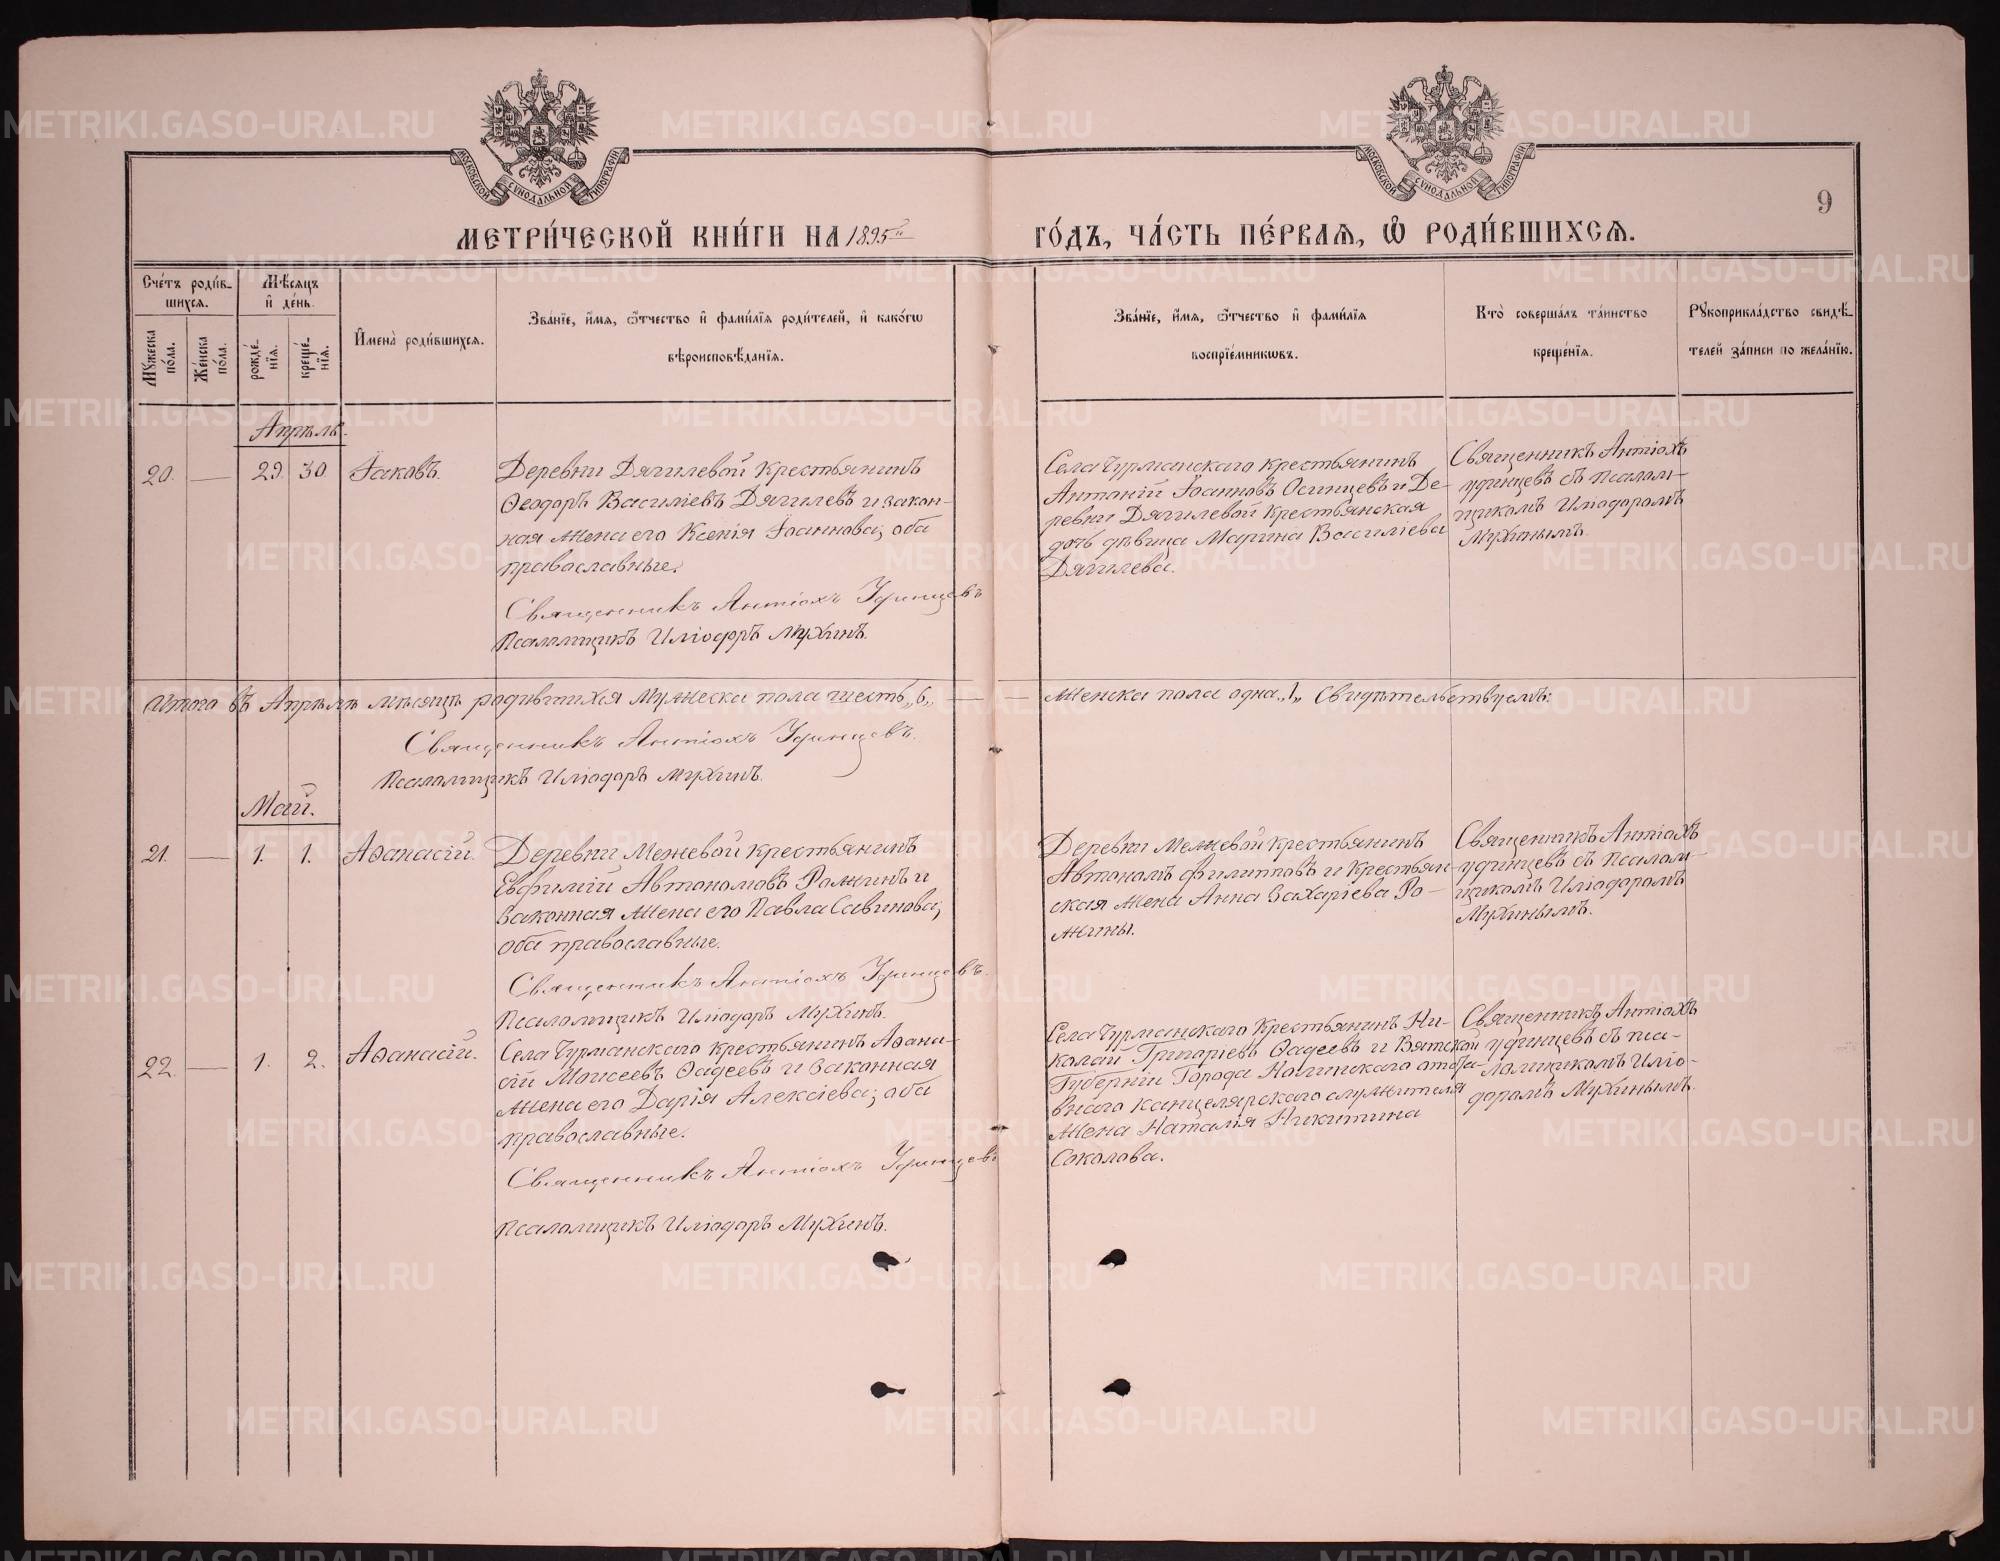 МОСКОВСКОЙ СѴНОДАЛЬНОЙ ТИПОГРАФІИ
МОСКОВСКОЙ СѴНОДАЛЬНОЙ ТИПОГРАФІИ
9
МЕТРИ́ЧЕСКОЙ КНИ́ГИ НА 1895й
ГО́ДЪ, ЧА́СТЬ ПЕ́РВАѦ, Ѡ РОДИ́ВШИХСѦ.
Сче́тъ роди́в-
шихсѧ.
Мѣ́сѧцъ
и҆ де́нь.
Мꙋ́жеска
по́ла.
Же́нска
по́ла.
рожде́-
нїѧ.
креще́-
нїѧ.
И҆мена̀ роди́вшихсѧ.
Зва́нїе, и҆́мѧ, ѻ҆́тчество и҆ фамі́лїѧ роди́телей, и҆ како́гѡ
вѣроисповѣ́данїѧ.
Зва́нїе, и҆́мѧ, ѻ҆́тчество и҆ фамі́лїѧ
воспрїе́мникѡвъ.
Кто̀ соверша́лъ та́инство
креще́нїѧ.
Рꙋкоприкла́дство свидѣ́-
телей за́писи по жела́нїю.
Апрѣль.
20. — 29. 30. Іаковъ.
Деревни Дягилевой крестьянинъ
Ѳеодоръ Василіевъ Дягилевъ и закон-
ная жена его Ксенія Іоаннова; оба
православные.
Священникъ Антіохъ Удинцевъ
Псаломщикъ Иліодоръ Мухинъ.
Села Чурманскаго крестьянинъ
Антоній Іоанновъ Осинцевъ и Де-
ревни Дягилевой крестьянская
дочь девица Марина Василіева
Дягилева.
Священникъ Антіохъ
Удинцевъ съ псалом-
щикомъ Иліодоромъ
Мухинымъ.
Итого въ Апрѣлѣ мѣсяцѣ родившихся мужеска пола шесть „6„ —
— женска пола одна „1„ Свидѣтельствуемъ:
Священникъ Антіохъ Удинцевъ.
Псаломщикъ Иліодоръ Мухинъ.
Май.
21. — 1. 1. Аѳанасій.
Деревни Межевой крестьянинъ
Евфимій Автономовъ Рожинъ и
законная жена его Павла Савинова;
оба православные.
Священникъ Антіохъ Удинцевъ.
Псаломщикъ Иліодоръ Мухинъ.
Деревни Межевой крестьянинъ
Автономъ Филипповъ и крестьян-
ская жена Анна Захаріева Ро-
жины.
Священникъ Антіохъ
Удинцевъ съ псалом-
щикомъ Иліодоромъ
Мухинымъ.
22. — 1. 2. Аѳанасій.
Села Чурманскаго крестьянинъ Аѳана-
сій Моисеевъ Ѳадеевъ и законная
жена его Дарія Алексіева; оба
православные.
Священникъ Антіохъ Удинцевъ
Псаломщикъ Иліодоръ Мухинъ.
Села Чурманскаго крестьянинъ Ни-
колай Григоріевъ Ѳадеевъ и Вятской
Губерніи Города Нолинскаго
канцелярскаго служителя
жена Наталія Никитина
Соколова.
Священникъ Антіохъ
Удинцевъ съ пса-
ломщикомъ Иліо-
доромъ Мухинымъ.
METRIKI.GASO-URAL.RU